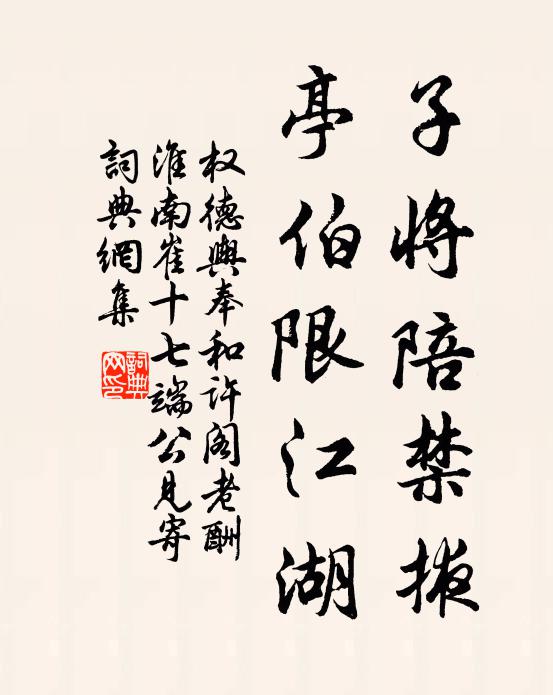 子將陪禁掖
亭伯限江湖
权德輿奉和许阁老酬
淮南崔十七端公見寄
詞典網集
詞典
网印